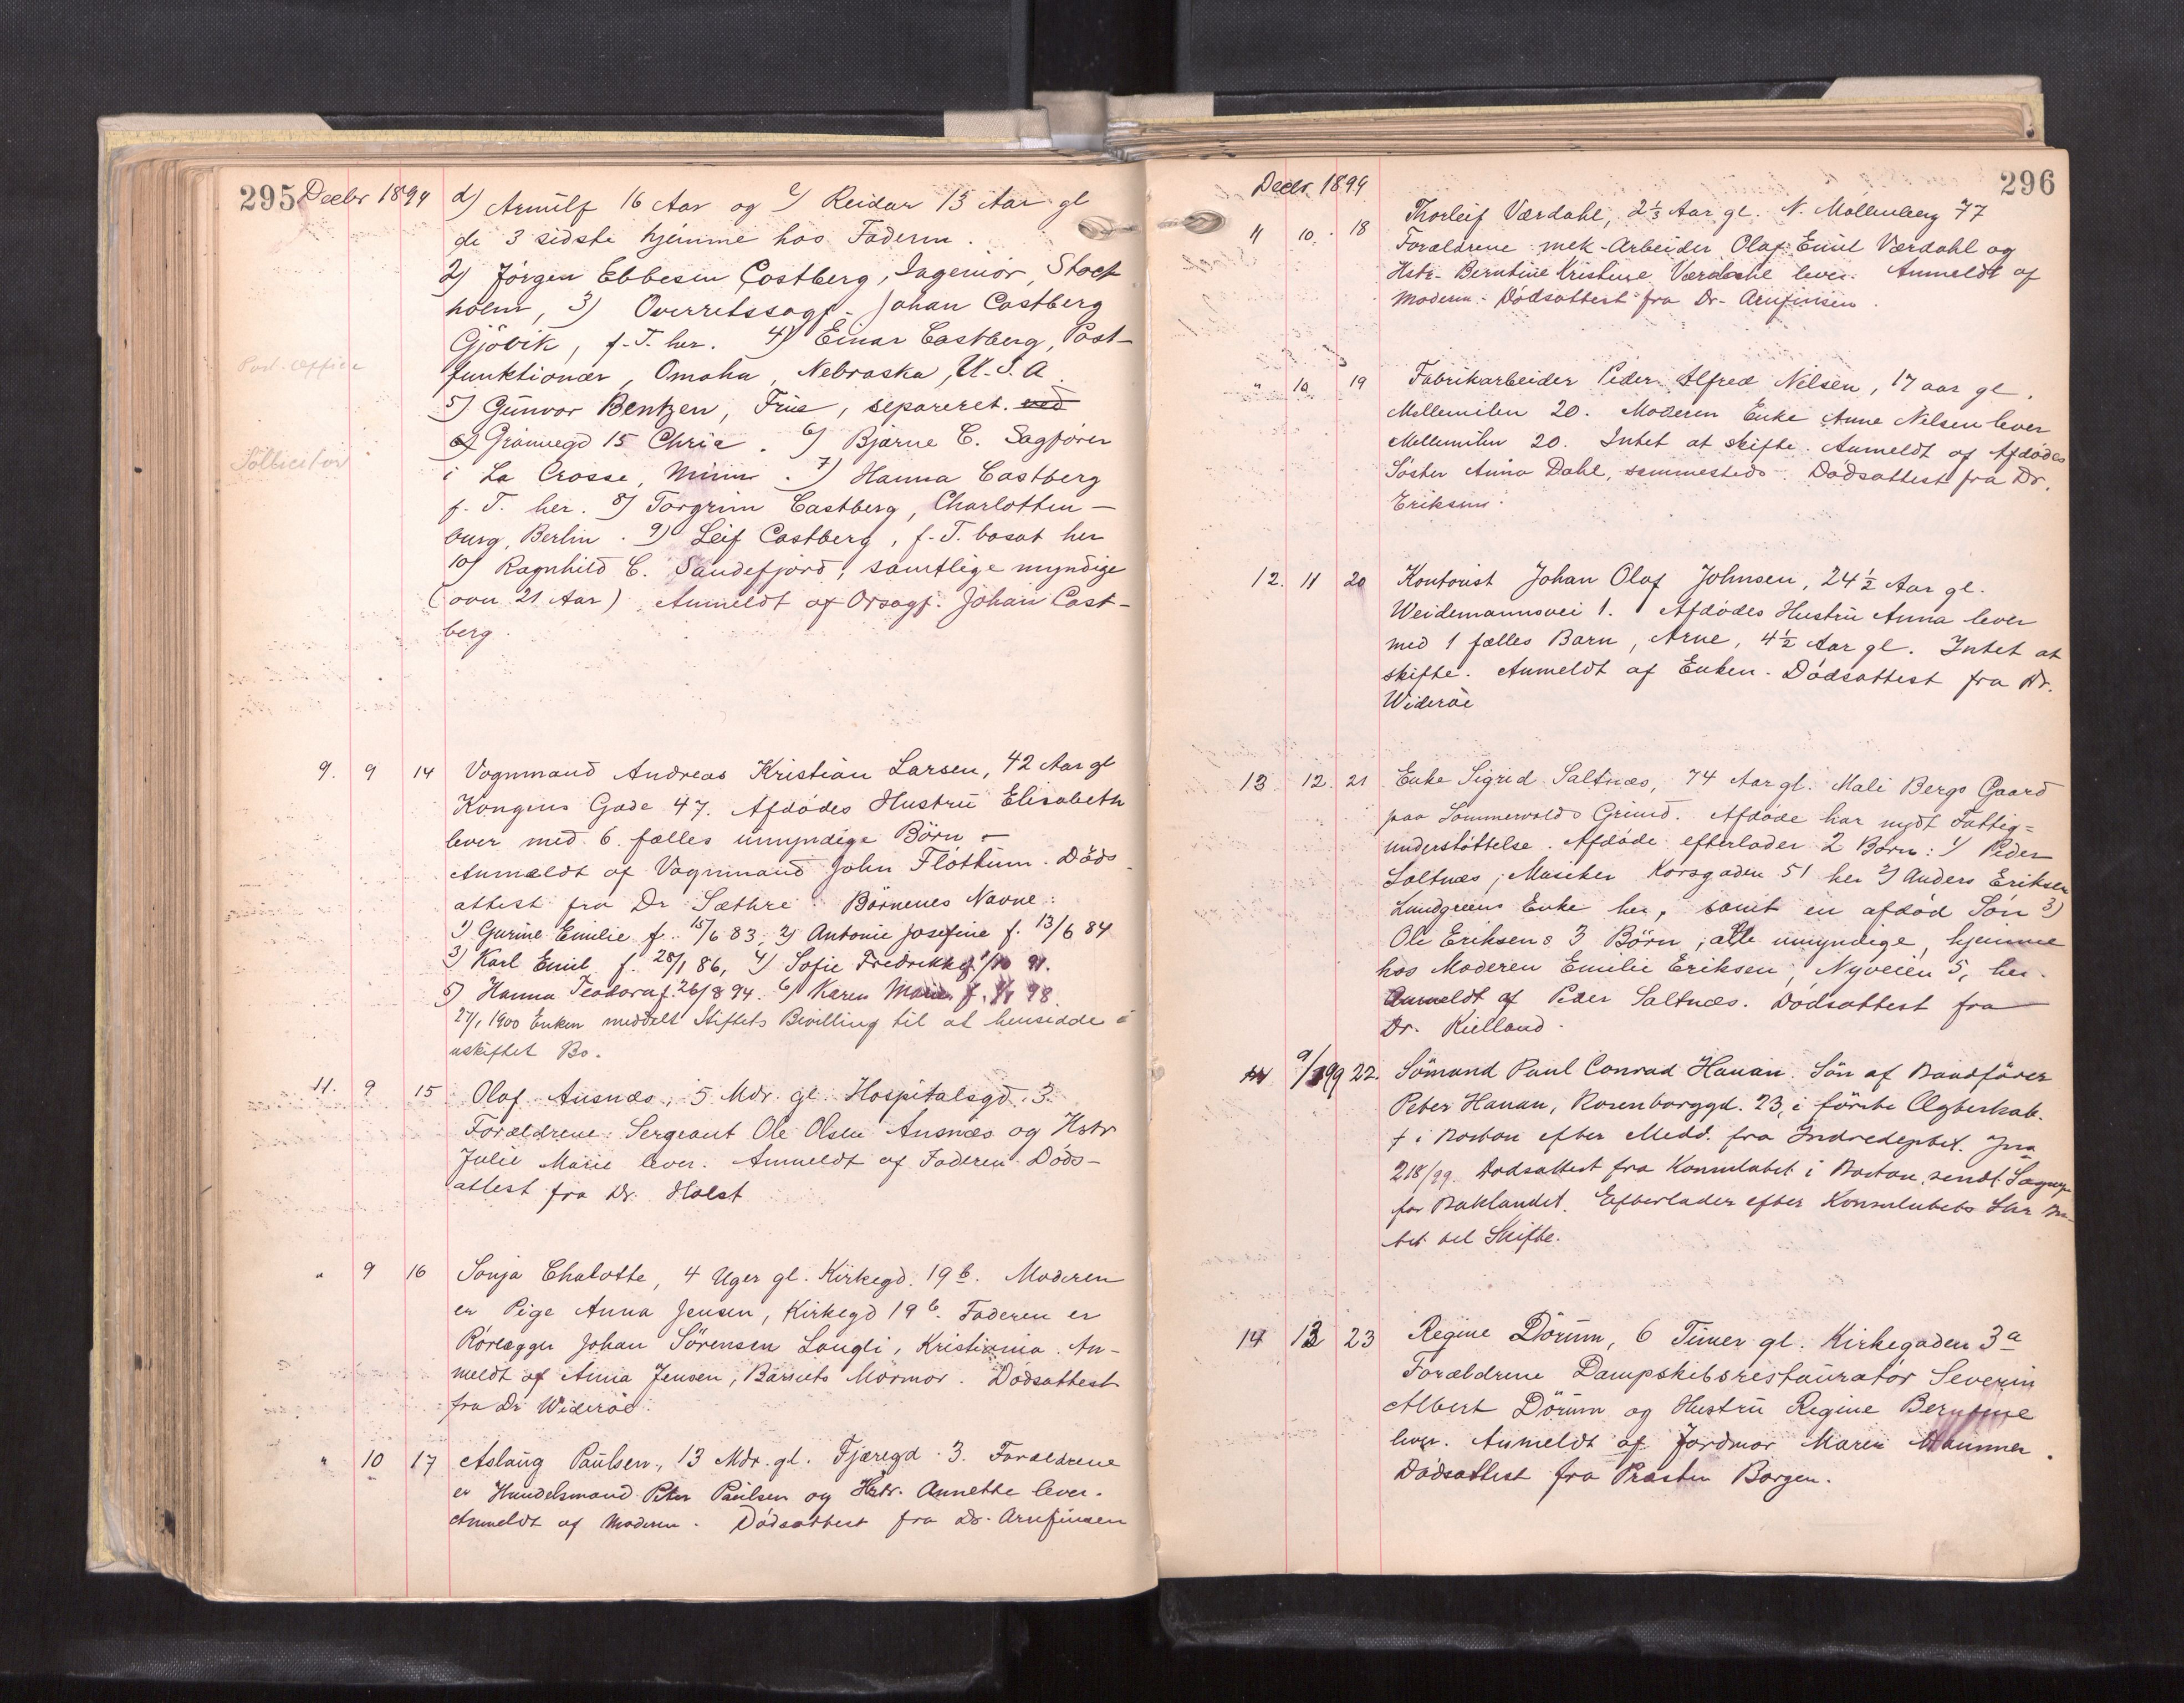 295 Decbr 1899
d) Arnulf 16 Aar og e) Reidar 13 Aar gl
de 3 sidste hjemme hos Faderen.
2) Jørgen Ebbesen Castberg, Ingeniør, Stock
holm, 3) Overretssagf. Johan Castberg
Gjøvik, f. T. her. 4) Einar Castberg, Post-
Post-office
funktionær, Omaha, Nebraska, U.S.A
5) Gunvor Bentzen, Frue, separeret. ved
Grønnegd 15 Chria. 6) Bjarne C. Sagfører
Sollicitor
i La Crosse, Minn. 7) Hanna Castberg
f. T. her. 8) Torgrim Castberg, Charlotten-
burg, Berlin. 9) Leif Castberg, f. T. bosat her
10) Ragnhild C. Sandefjord, samtlige myndige
(over 21 Aar) Anmeldt af Orsagf. Johan Cast-
berg.
9. 9 14 Vognmand Andreas Kristian Larsen, 42 Aar gl
Kongens Gade 47. Afdødes Hustru Elisabeth
lever med 6 fælles umyndige Børn -
Anmeldt af Vognmand John Fløttum. Døds-
attest fra Dr Sæthre. Børnenes Navne:
1) Gurine Emilie f. 15/6 83, 2) Antonie Josefine f. 13/6 84
3) Karl Emil f. 28/1 86, 4) Sofie Fredrikke f. 1/10 91.
5) Hanna Teodora f. 26/8 94. 6) Karen Marie f. 98.
27/1 1900 Enken meddelt Stiftets Bevilling til at hensidde i
uskiftet Bo.
11. 9 15 Olaf Ausnæs, 5 Mdr. gl. Hospitalsgd. 3.
Forældrene: Sergeant Ole Olsen Ausnæs og Hstr
Julie Marie lever. Anmeldt af Faderen. Døds-
attest fra Dr. Holst
" 9 16 Sonja Chalotte, 4 Uger gl. Kirkegd. 19 b. Moderen
er Pige Anna Jensen, Kirkegd 19 b. Faderen er
Rørlægger Johan Sørensen Langli, Kristiania. An-
meldt af Anna Jensen, Barnets Mormor. Dødsattest
fra Dr Widerøe.
" 10 17 Aslaug Paulsen, 13 Mdr. gl. Fjæregd. 3. Forældrene
er Handelsmand Peter Paulsen og Hstr. Annette lever.
Anmeldt af Moderen. Dødsattest fra Dr. Arnfinsen
Decbr. 1899 296
11 10. 18 Thorleif Værdahl, 2 1/3 Aar gl. N. Møllenberg 77
Forældrene mek-Arbeider Olaf Emil Værdahl og
Hstr. Berntine Kristine Værdahl lever. Anmeldt af
Moderen. Dødsattest fra Dr. Arnfinsen.
" 10 19 Fabrikarbeider Peder Alfred Nilsen, 17 aar gl.
Mellemilen 20. Moderen Enke Anne Nilsen lever
Mellemilen 20. Intet at skifte. Anmeldt af Afdødes
Søster Anna Dahl, sammesteds. Dødsattest fra Dr.
Eriksen.
12. 11 20 Kontorist Johan Olaf Johnsen, 24 1/2 Aar gl.
Weidemannsvei 1. Afdødes Hustru Anna lever
med 1 fælles Barn, Arne, 4 1/2 Aar gl. Intet at
skifte. Anmeldt af Enken. Dødsattest fra Dr.
Widerøe
13 12. 21 Enke Sigrid Saltnæs, 74 Aar gl. Mali Bergs Gaard
paa Sommervolds Grund. Afdøde har nydt Fattig=
understøttelse. Afdøde efterlader 2 Børn: 1) Peder
Saltnæs, Musiker Korsgaden 51 her 2) Anders Eriksen
Lundgreens Enke her, samt en afdød Søn 3)
Ole Eriksens 3 Børn, alle umyndige, hjemme
hos Moderen Emilie Eriksen, Nyveien 5, her.
Anmeldt af Peder Saltnæs. Dødsattest fra
Dr. Kielland.
22. Sømand Paul Conrad Hanan. Søn af Baadfører
Peter Hanan, Rosenborggd. 23, i første Ægteskab.
† i Boston efter Medd. fra Indredeptet. Jna
218/99. Dødsattest fra Konsulatet i Boston sendt Sognepr
for Baklandet. Efterlader efter Konsulatets Skr In-
tet til Skifte.
14 13 23 Regine Dørum, 6 Timer gl. Kirkegaden 3 a
Forældrene Dampskibsrestauratør Severin
Albert Dørum og Hustru Regine Berntine
lever. Anmeldt af Jordmor Maren Hammer.
Dødsattest fra Præsten Borgen.